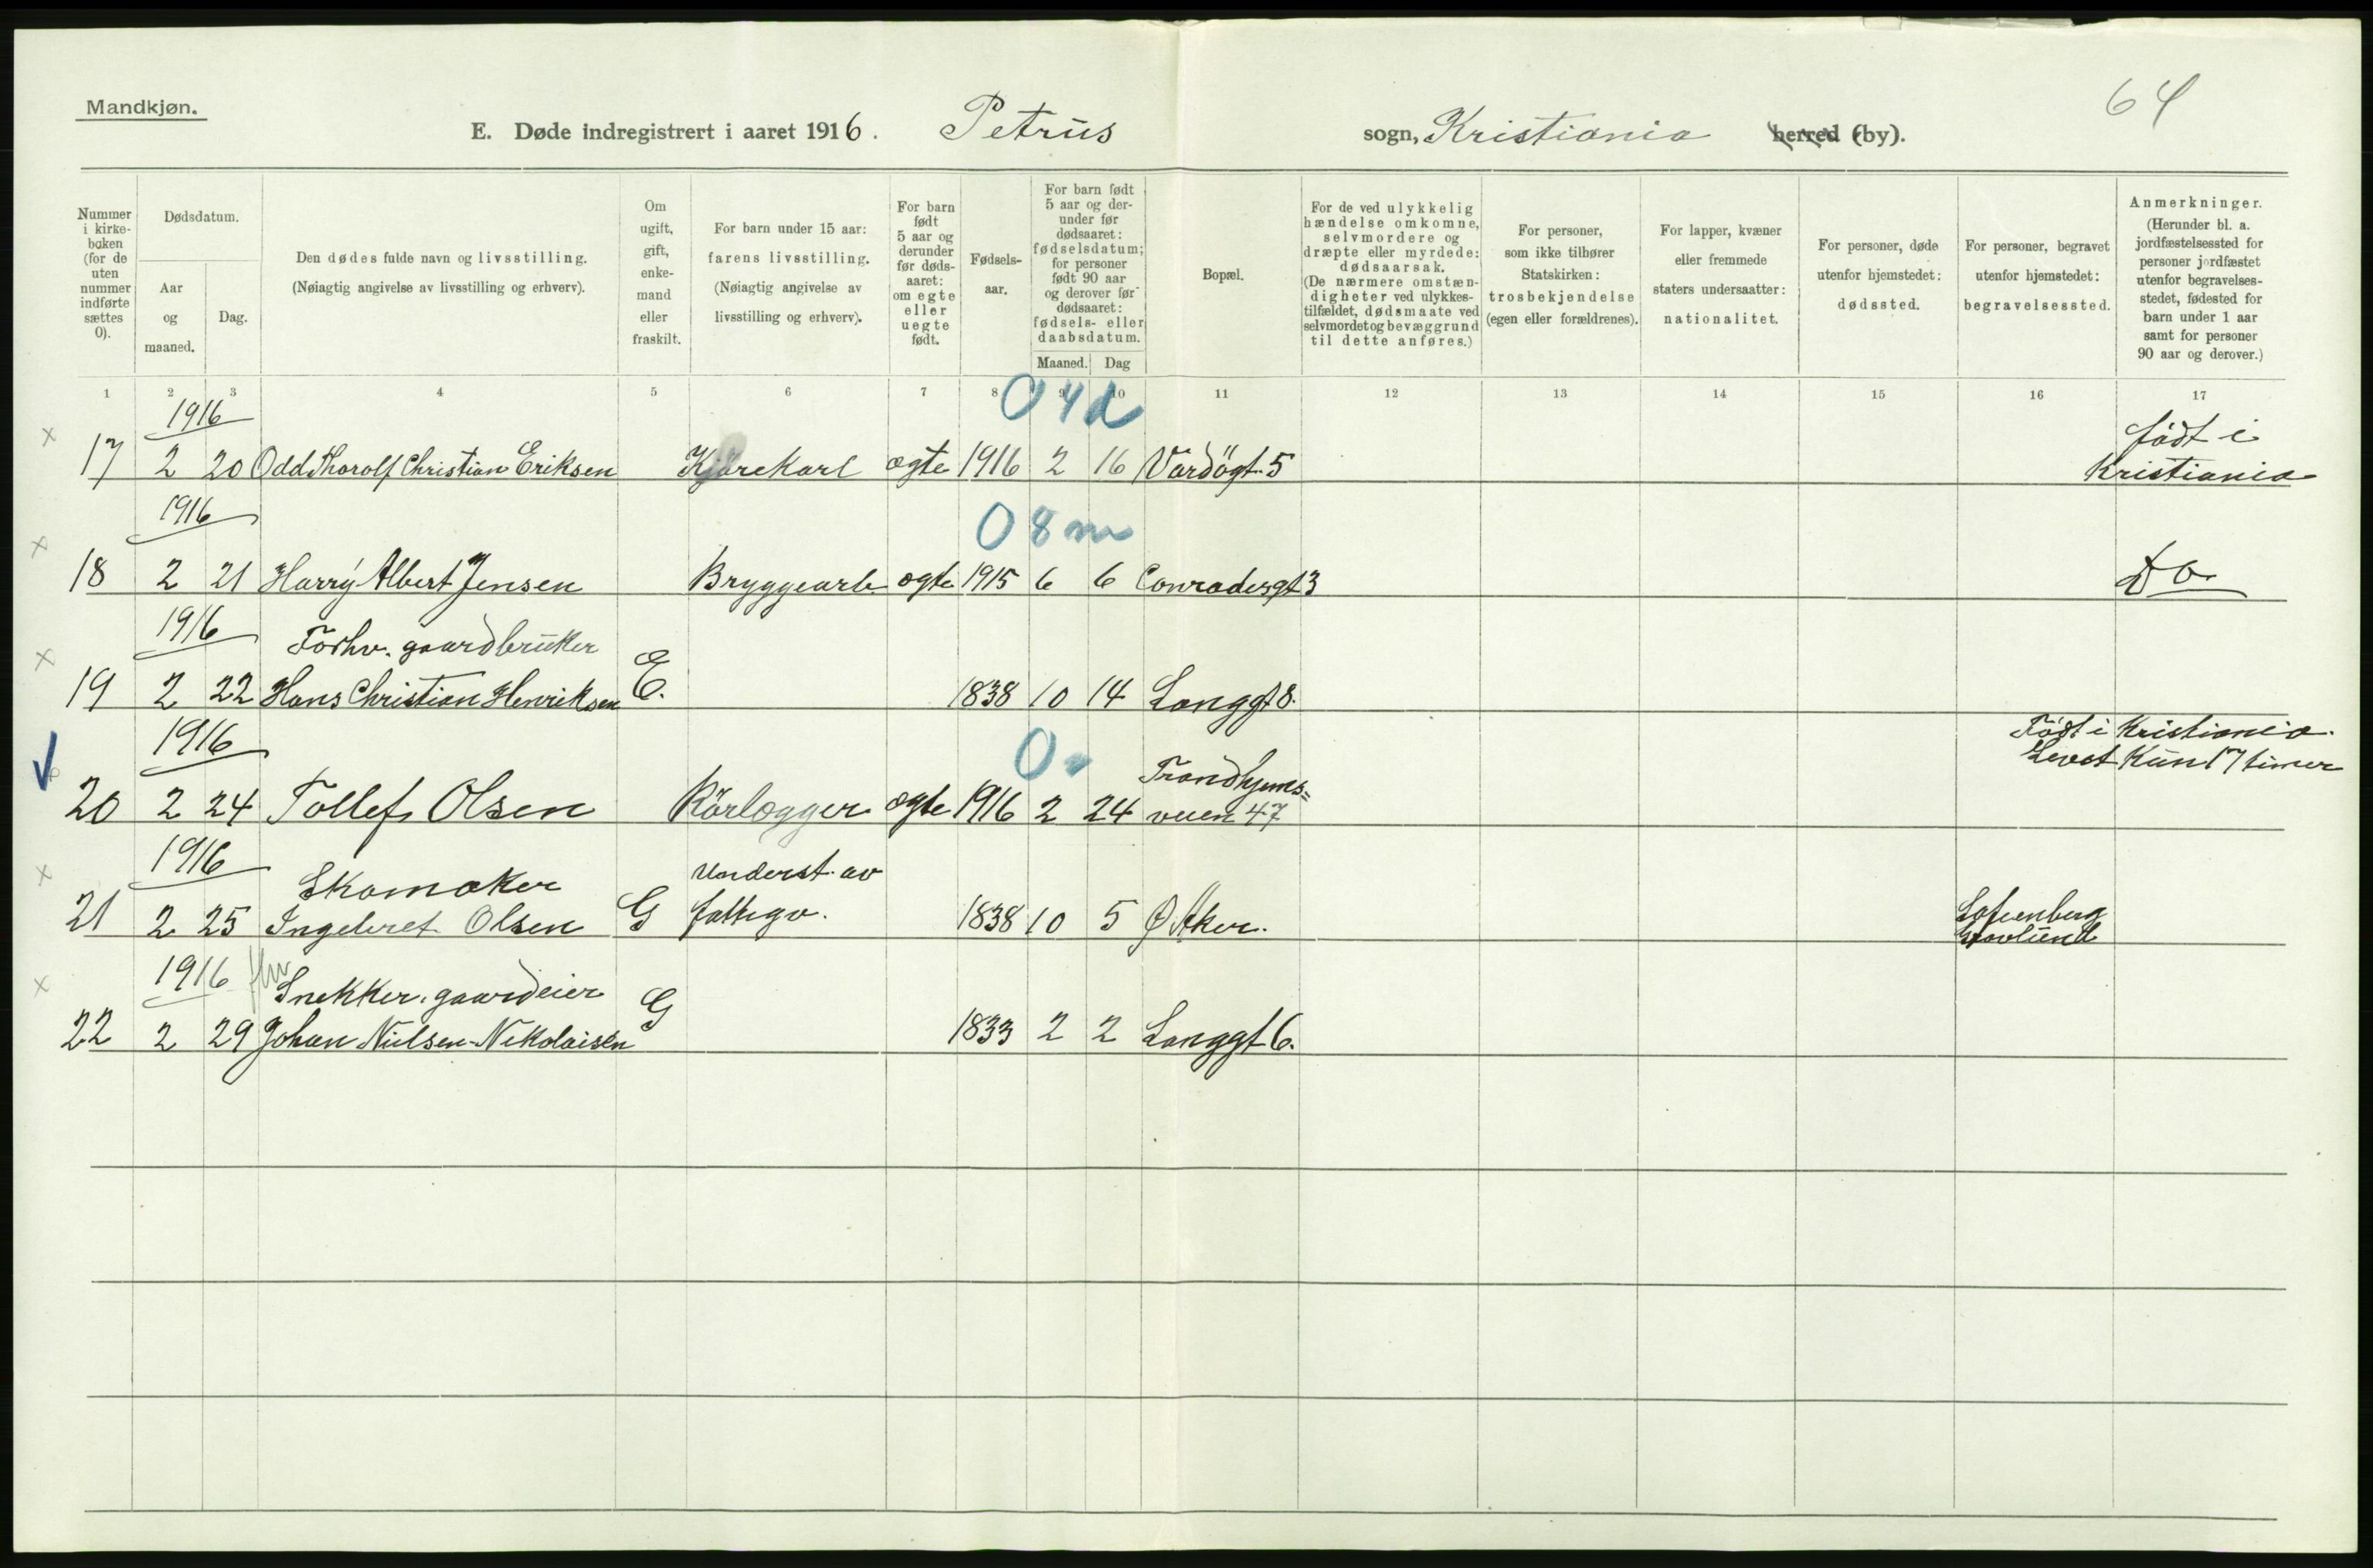 64
Mandkjøn.
E. Døde indregistrert i aaret 1916. Petrus sogn, Kristiania herred (by).
Nummer i kirkeboken (for de uten nummer indførte sættes 0).
Dødsdatum.
Aar og maaned.
Dag.
Den dødes fulde navn og livsstilling.
(Nøiagtig angivelse av livsstilling og erhverv).
Om ugift, gift, enkemand eller fraskilt.
For barn under 15 aar:
farens livsstilling.
(Nøiagtig angivelse av livsstilling og erhverv).
For barn født 5 aar og derunder før dødsaaret: om egte eller uegte født.
Fødselsaar.
For barn født 5 aar og derunder før dødsaaret: fødselsdatum; for personer født 90 aar og derover før dødsaaret: fødsels- eller daabsdatum.
Maaned. Dag
Bopæl.
For de ved ulykkelig hændelse omkomne, selvmordere og dræpte eller myrdede: dødsaarsak. (De nærmere omstændigheter ved ulykkestilfældet, dødsmaate ved selvmordet og bevæggrund til dette anføres.)
For personer, som ikke tilhører Statskirken: trosbekjendelse (egen eller forældrenes).
For lapper, kvæner eller fremmede staters undersaatter: nationalitet.
For personer, døde utenfor hjemstedet: dødssted.
For personer, begravet utenfor hjemstedet: begravelsessted.
Anmerkninger.
(Herunder bl. a. jordfæstelsessted for personer jordfæstet utenfor begravelsesstedet, fødested for barn under 1 aar samt for personer 90 aar og derover.)
1 2 3 4 5 6 7 8 9 10 11 12 13 14 15 16 17
1916 0 4 d
født i
17 2 20 Odd Thorolf Christian Eriksen Kjørekarl ægte 1916 2 16 Vardögt. 5 Kristiania
1916 0 8 m
18 2 21 Harry Albert Jensen Bryggearb ægte 1915 6 6 Conradesgt 3 Do
1916 Forhv. gaardbruker
19 2 22 Hans Christian Henriksen E. 1838 10 14 Langgt 8.
1916 0 Født i Kristiania.
Trondhjems= Levet kun 17 timer
20 2 24 Tollef Olsen Rørlægger ægte 1916 2 24 veien 47
1916 Skomaker Underst. av
21 2 25 Ingebret Olsen G fattigv. 1838 10 5 Ø Aker. Sofienberg Gravlund
1916 fhv Snekker. gaardeier
22 2 29 Johan Nielsen-Nikolaisen G 1833 2 2 Langgt 6.